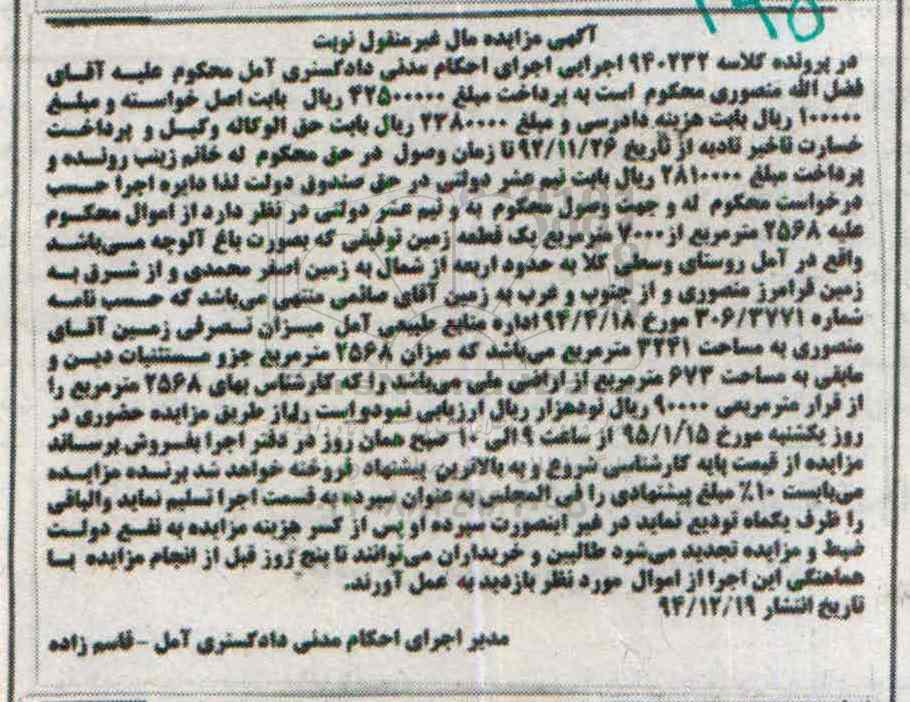 ۱۹۵
آگهی مزایده مال غیرمنقول نوبت
در پرونده کلاسه ۹۴۰۲۳۲ اجرایی اجرای احکام مدنی دادگستری آمل محکوم علیه آقای
فضل الله منصوری محکوم است به پرداخت مبلغ ۴۲۵۰۰۰۰۰ ریال بابت اصل خواسته و مبلغ
۱۰۰۰۰۰ ریال بابت هزینه دادرسی و مبلغ ۲۳۸۰۰۰۰ ریال بابت حق الوکاله وکیل و پرداخت
خسارت تاخیر تادیه از تاریخ ۹۲/۱۱/۲۶ تا زمان وصول در حق محکوم له خانم زینب رونده و
پرداخت مبلغ ۲۸۱۰۰۰۰ ریال بابت نیم عشر دولتی در حق صندوق دولت لذا دایره اجرا حسب
درخواست محکوم له و جهت وصول محکوم به و نیم عشر دولتی در نظر دارد از اموال محکوم
علیه ۲۵۶۸ مترمربع از ۷۰۰۰ مترمربع یک قطعه زمین توقیفی که بصورت باغ آلوچه می‌باشد
واقع در آمل روستای وسطی کلا به حدود اربعه از شمال به زمین اصغر محمدی و از شرق به
زمین فرامرز منصوری و از جنوب و غرب به زمین آقای صائمی منتهی می‌باشد که حسب نامه
شماره ۳۰۶/۳۷۷۱ مورخ ۹۴/۴/۱۸ اداره منابع طبیعی آمل میزان تصرفی زمین آقای
منصوری به مساحت ۳۲۴۱ مترمربع می‌باشد که میزان ۲۵۶۸ مترمربع جزو مستثنیات دین و
مابقی به مساحت ۶۷۳ مترمربع از اراضی ملی می‌باشد را که کارشناس بهای ۲۵۶۸ مترمربع را
از قرار مترمربعی ۹۰۰۰۰ ریال نودهزار ریال ارزیابی نموده است را از طریق مزایده حضوری در
روز یکشنبه مورخ ۹۵/۱/۱۵ از ساعت ۹ الی ۱۰ صبح همان روز در دفتر اجرا بفروش برساند
مزایده از قیمت پایه کارشناسی شروع و به بالاترین پیشنهاد فروخته خواهد شد برنده مزایده
می‌بایست ۱۰٪ مبلغ پیشنهادی را فی المجلس به عنوان سپرده به قسمت اجرا تسلیم نماید والباقی
را ظرف یکماه تودیع نماید در غیر اینصورت سپرده او پس از کسر هزینه مزایده به نفع دولت
ضبط و مزایده تجدید می‌شود طالبین و خریداران می‌توانند تا پنج روز قبل از انجام مزایده با
هماهنگی این اجرا از اموال مورد نظر بازدید به عمل آورند.
تاریخ انتشار ۹۴/۱۲/۱۹
مدیر اجرای احکام مدنی دادگستری آمل - قاسم زاده